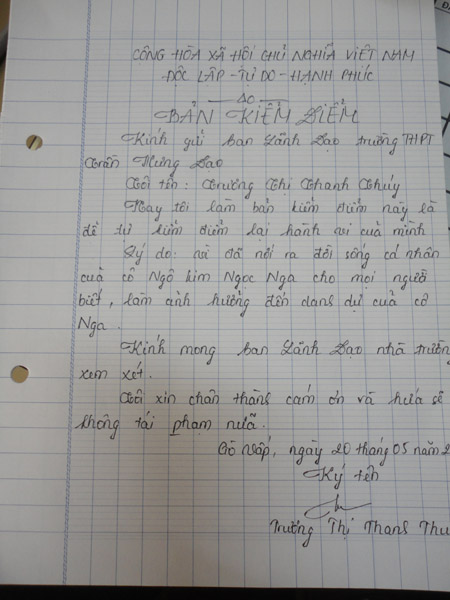 CÔNG HÒA XÃ HÔI CHỦ NGHĨA VIỆT NAM
ĐỐC LẬP - TỰ DO - HẠNH PHÚC
BẢN KIỂM ĐIỂM
Kính gửi ban Lãnh Đạo trường THPT
Trần Hưng Đạo
Tôi tên : Trương Thị Thanh Thúy
Nay tôi làm bản kiểm điểm này là
để tự kiểm điểm lại hành vi cuả mình
Lý do: vì đã nói ra đời sống cá nhân
cuả cô Ngô kim Ngọc Nga cho mọi người
biết, làm ảnh hưởng đến danh dự cuả cô
Nga .
Kính mong ban Lãnh Đạo nhà trường
xem xét.
Tôi xin chân thành cám ơn và hứa sẽ
không tái phạm nưã .
Gò Vấp, ngày 20 tháng 05 năm 2
Ký tên
Trương Thị Thanh Thu